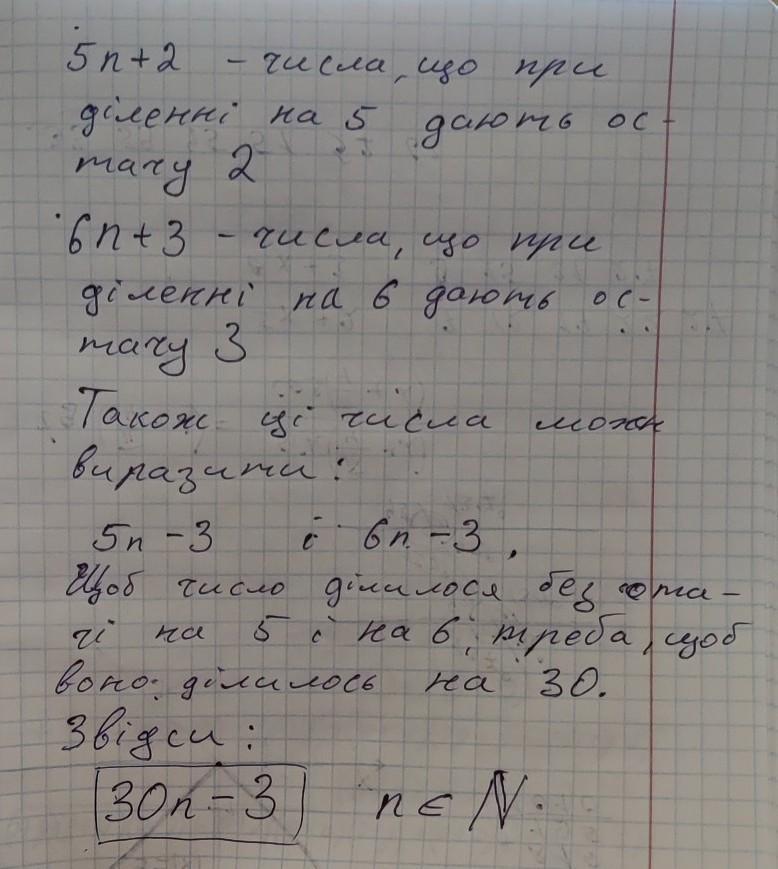 5n+2 - числа, що при
діленні на 5 дають ос-
тачу 2
6n+3 - числа, що при
діленні на 6 дають ос-
тачу 3
Також ці числа можн
виразити:
5n-3 і 6n-3,
Щоб число ділилося без ота-
чі на 5 і на 6, треба, щоб
воно ділилось на 30.
Звідси:
30n-3 n ∈ N.